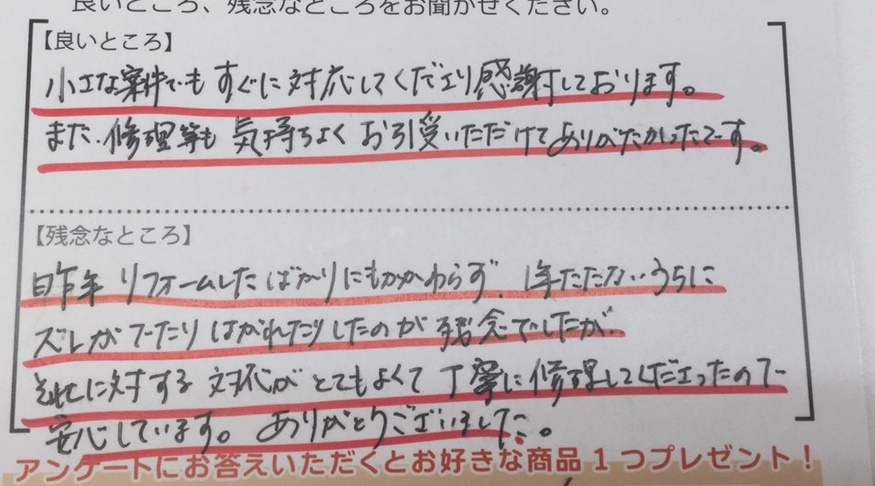 良いところ、残念なところをお聞かせください。
【良いところ】
小さな案件でもすぐに対応してくださり感謝しております。
また、修理等も気持ちよくお引受いただけてありがたかったです。
【残念なところ】
昨年リフォームしたばかりにもかかわらず、1年たたないうちに
ズレがでたりはがれたりしたのが残念でしたが、
それに対する対応がとてもよくて丁寧に修理してくださったので
安心しています。ありがとうございました。
アンケートにお答えいただくとお好きな商品1つプレゼント!